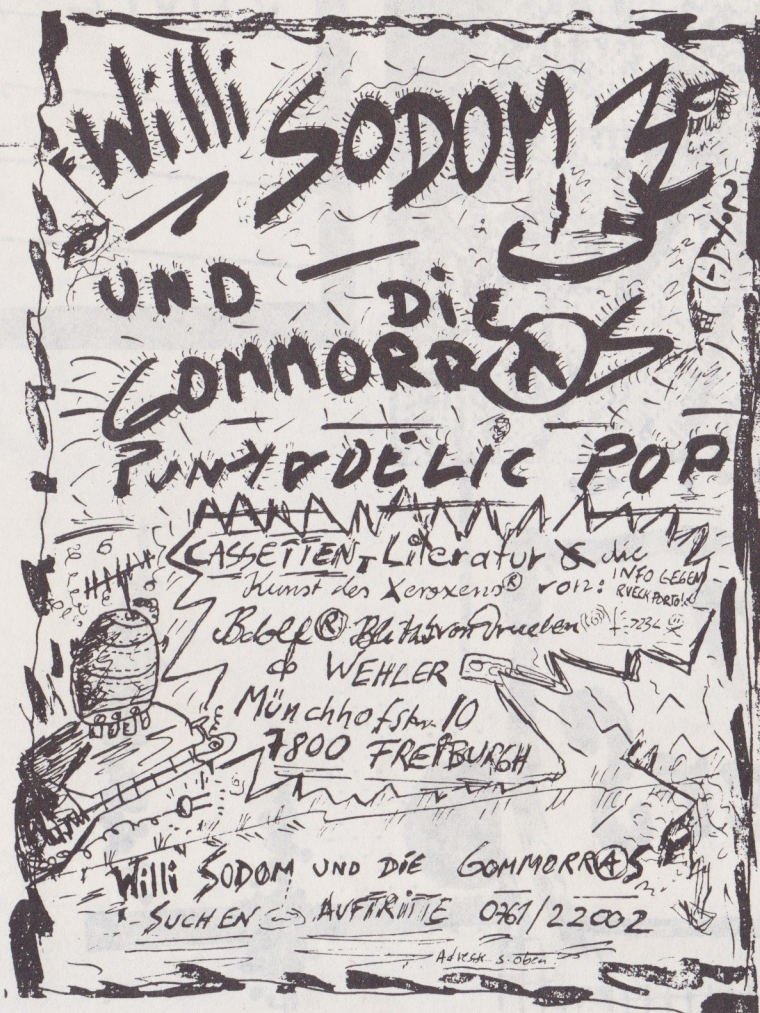 Willi SODOM
UND DIE
GOMMORRAS
PUNKADELIC POP
CASSETTEN, Literatur & die
Kunst des Xeroxens® von:
INFO GEGEN
RUECKPORTO!
Bdolf ®
c/o WEHLER
Münchhofstr. 10
7800 FREIBURGH
Willi SODOM UND DIE GOMMORRAS
SUCHEN AUFTRITTE 0761/22002
Adresse s. oben